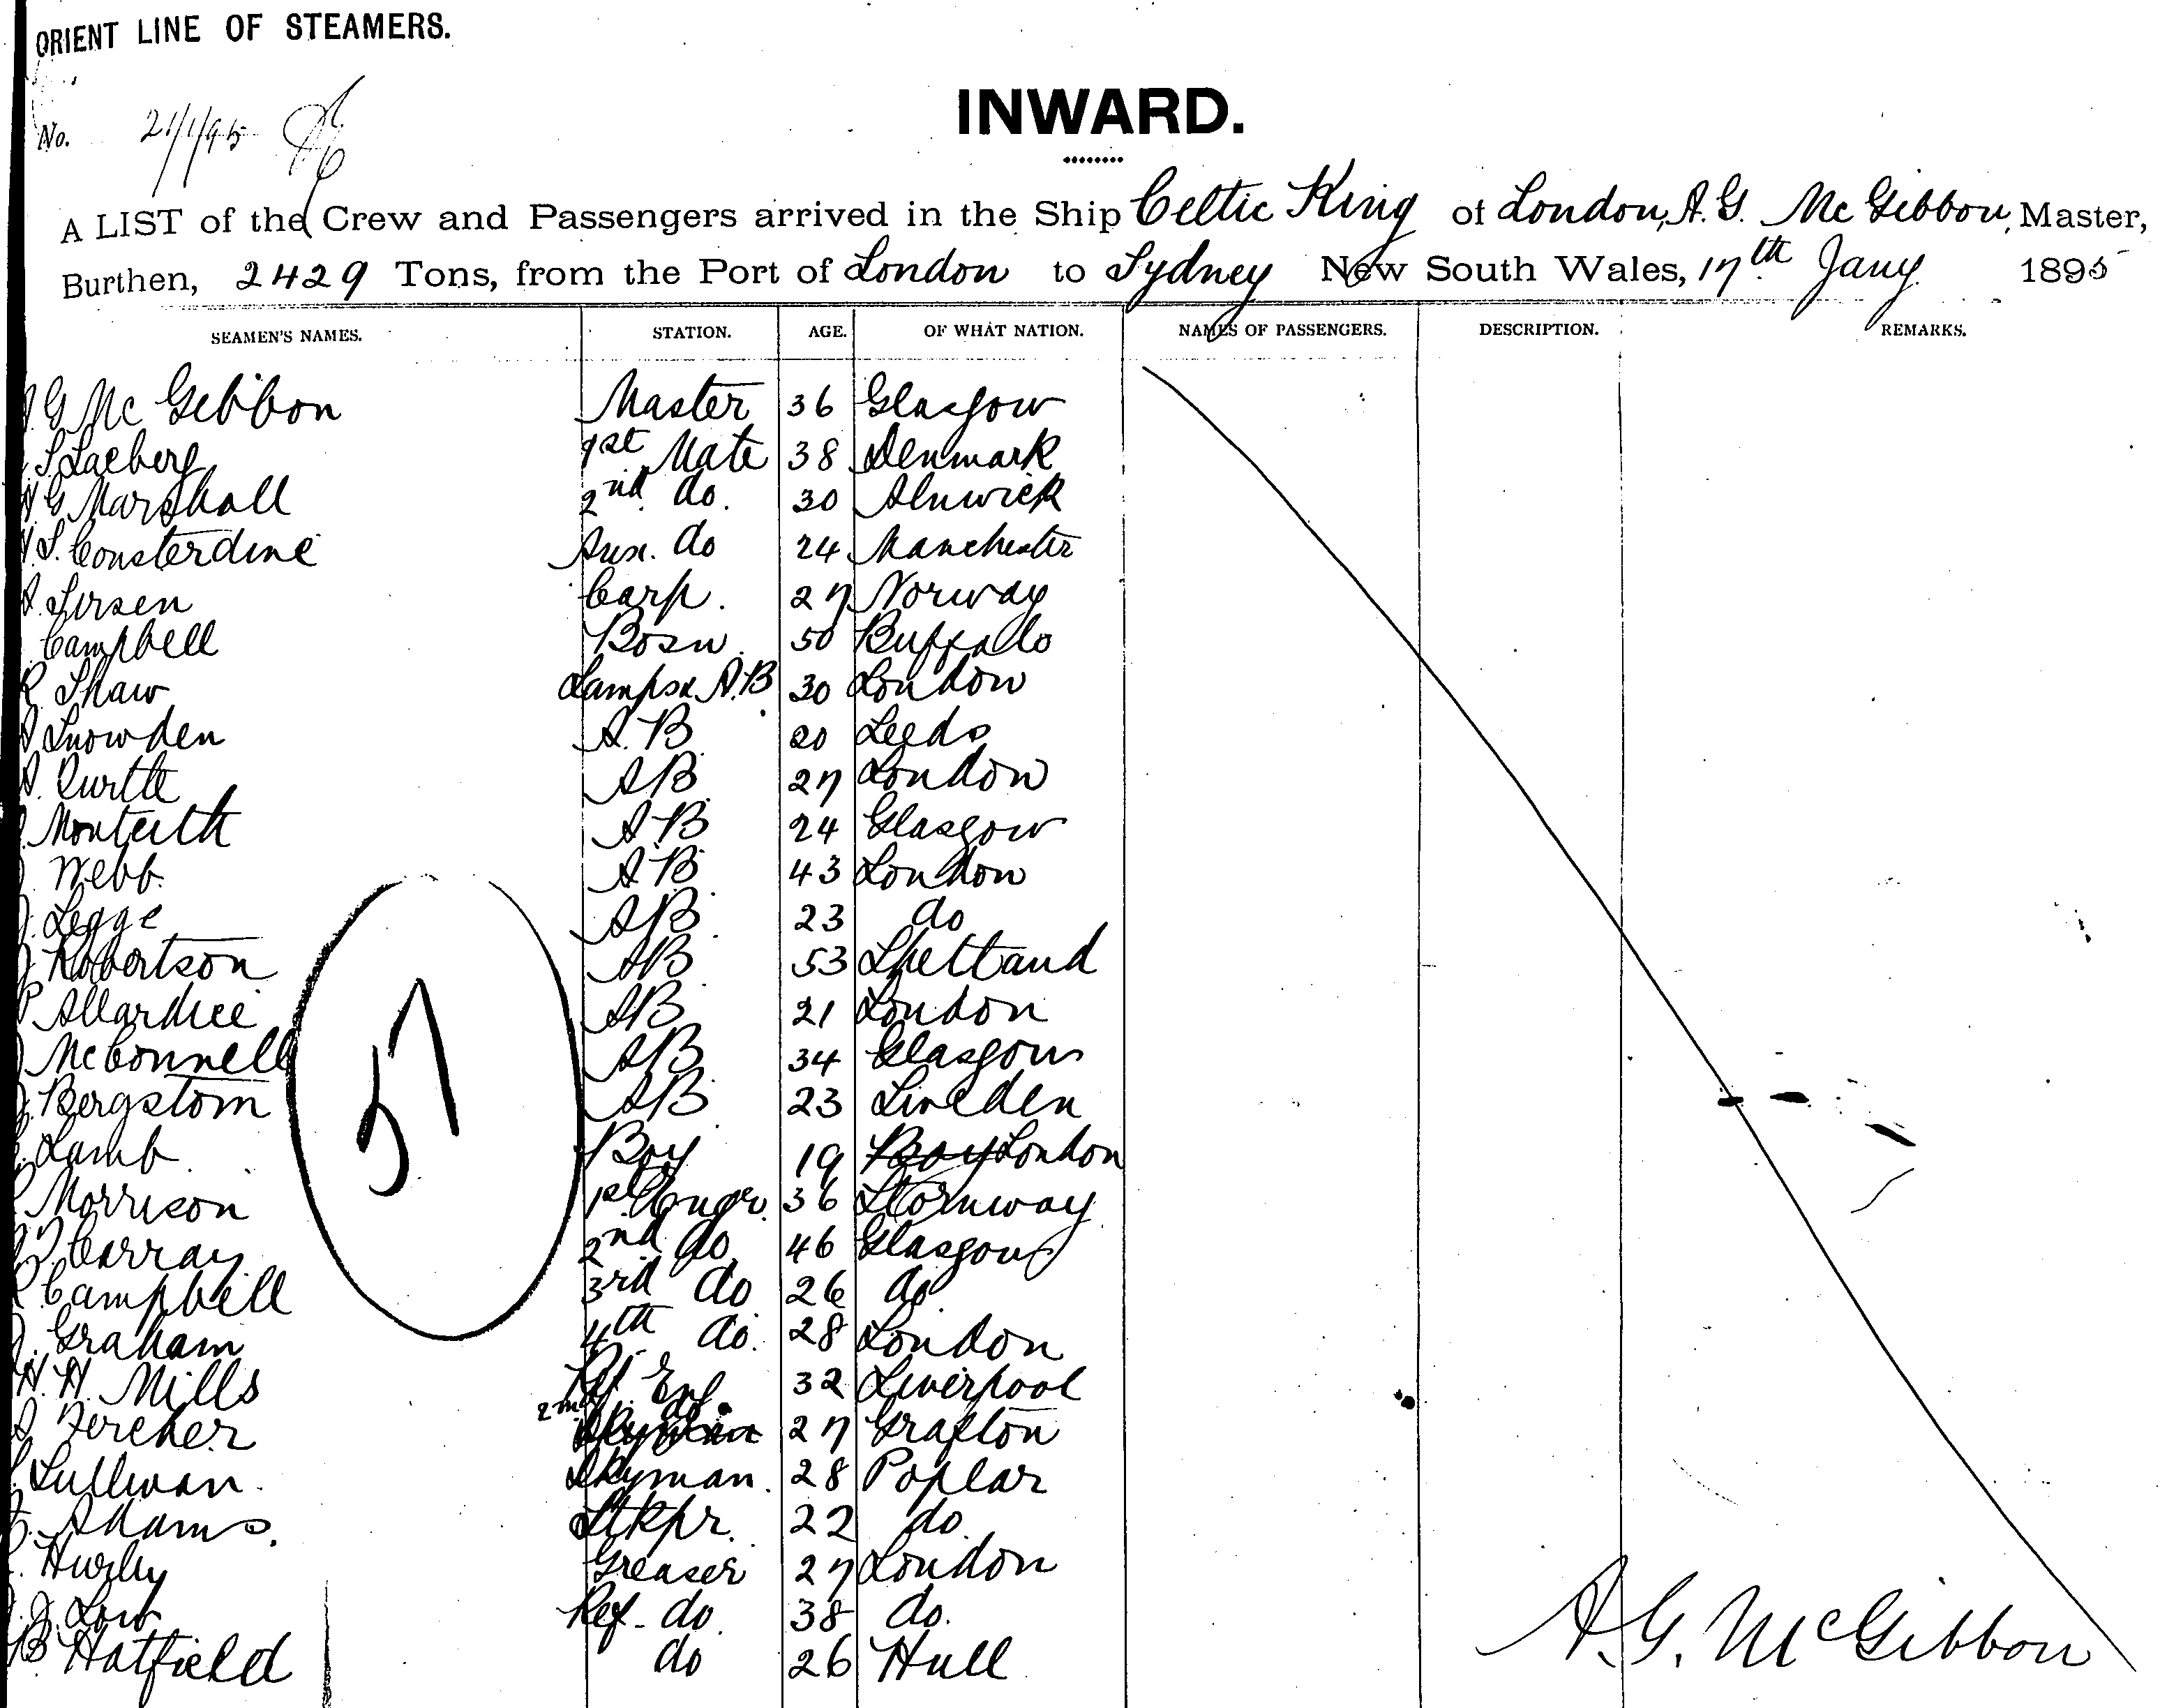 ORIENT LINE OF STEAMERS.
INWARD.
No. 21/1/95
A LIST of the Crew and Passengers arrived in the Ship Celtic King of London, A. G. McGibbon, Master,
Burthen, 2429 Tons, from the Port of London to Sydney New South Wales, 17th Jany 1895
SEAMEN'S NAMES. STATION. AGE. OF WHAT NATION. NAMES OF PASSENGERS. DESCRIPTION. REMARKS.
A G McGibbon Master 36 Glasgow
Laeberg 1st Mate 38 Denmark
G Marshall 2nd do. 30 Alnwick
S. Consterdine Aux. do 24 Manchester
Carp. 27 Norway
Campbell Bosn 50 Buffalo
R Shaw Lamps & A.B 30 London
Snowden A.B 20 Leeds
AB 27 London
Monteith AB 24 Glasgow
Webb. AB 43 London
Legge AB 23 do
Robertson AB 53 Shetland
P Allardice AB 21 London
McConnell AB 34 Glasgow
Bergstom AB 23 Sweden
Lamb Boy 19 Boy London
Morrison 1st Engr. 36 Stornway
Carray 2nd do 46 Glasgow
Campbell 3rd do 26 do
Graham 4th do. 28 London
H. H. Mills Ref. Eng 32 Liverpool
Fercher 2nd do. 27 Grafton
Sullivan. Dkyman. 28 Poplar
Adams. Stkpr. 22 do
Hurley Greaser 27 London
J. Low Ref. do. 38 do.
B. Hatfield do 26 Hull
57
A. G. McGibbon